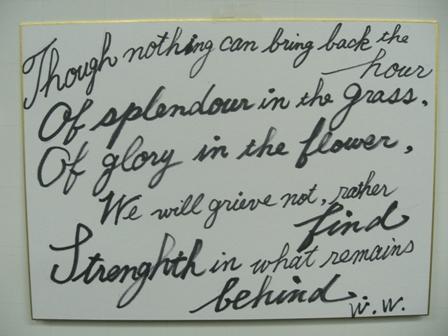 Though nothing can bring back the
hour
Of splendour in the grass.
Of glory in the flower,
We will grieve not, rather
find
Strenghth in what remains
behind.
W.W.